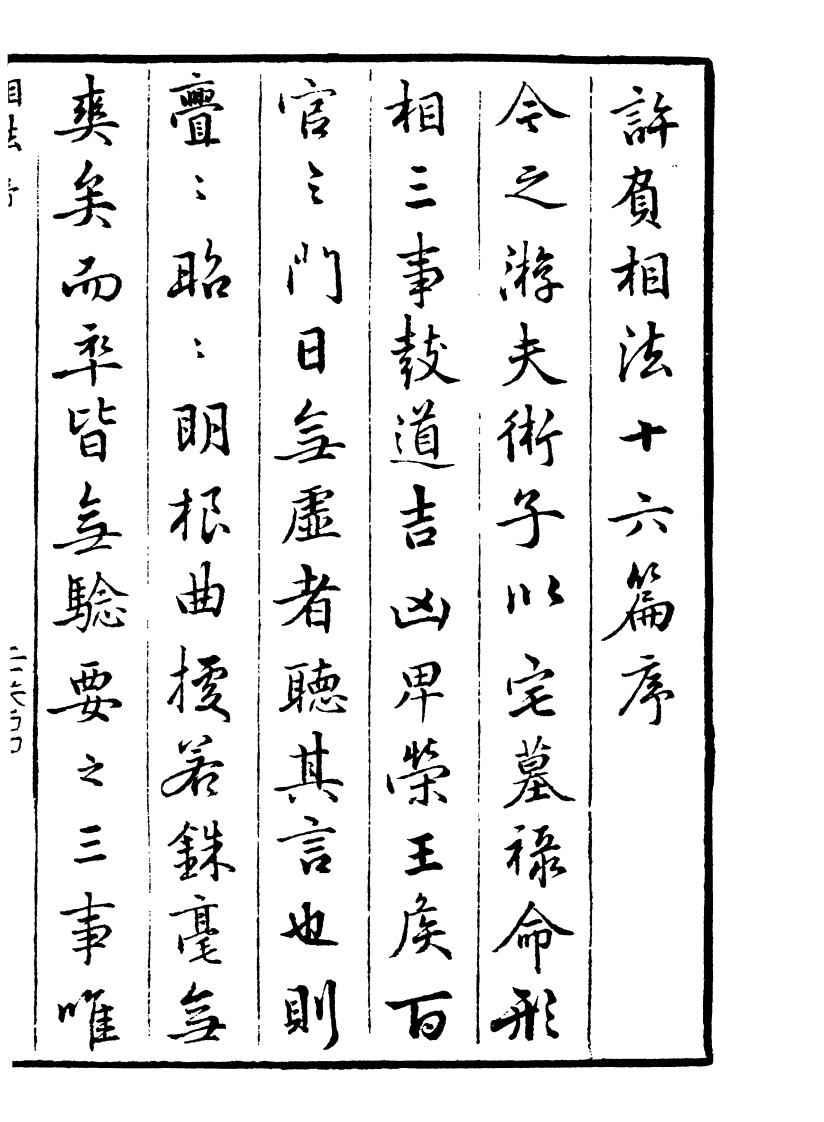 許負相法十六篇序
今之游夫術子以宅墓祿命形
相三事鼓道吉凶卑榮王侯百
官〻門日無虛者聽其言也則
亹〻昭〻明根曲援若銖毫無
爽矣而卒皆無驗要之三事唯
相法序